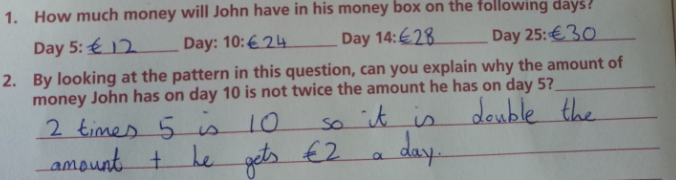 1. How much money will John have in his money box on the following days?
Day 5: €12 Day: 10: €24 Day 14: €28 Day 25: €30
2. By looking at the pattern in this question, can you explain why the amount of
money John has on day 10 is not twice the amount he has on day 5?
2 times 5 is 10 so it is double the
amount + he gets €2 a day.